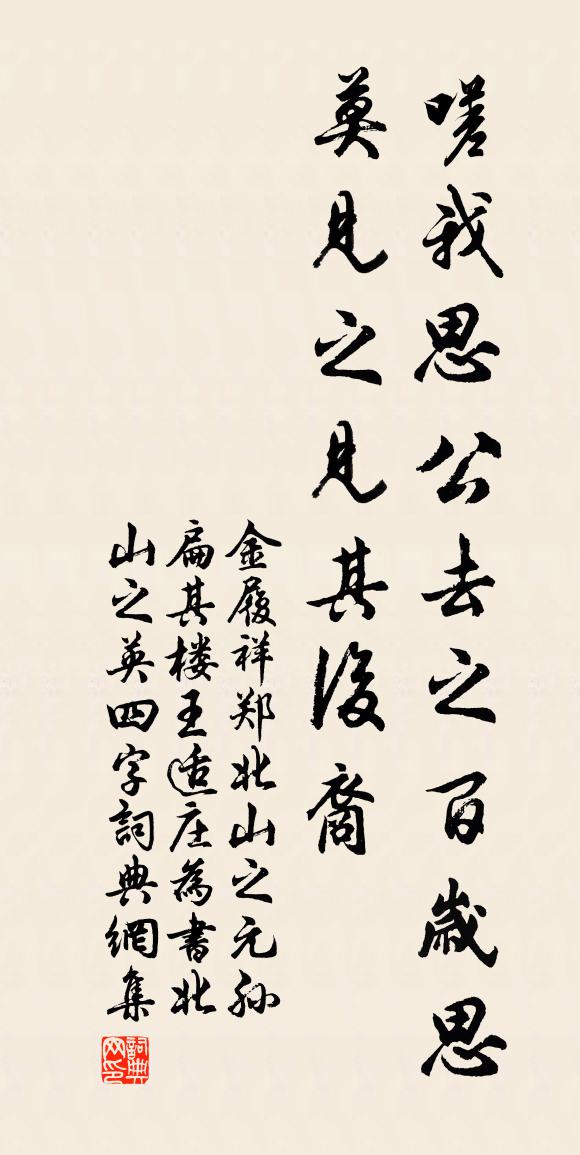 嗟我思公去之百歲思
莫見之見其後裔
金履祥郑北山之元孙
扁其楼王适庄為書北
山之英四字詞典網集
詞典
网印